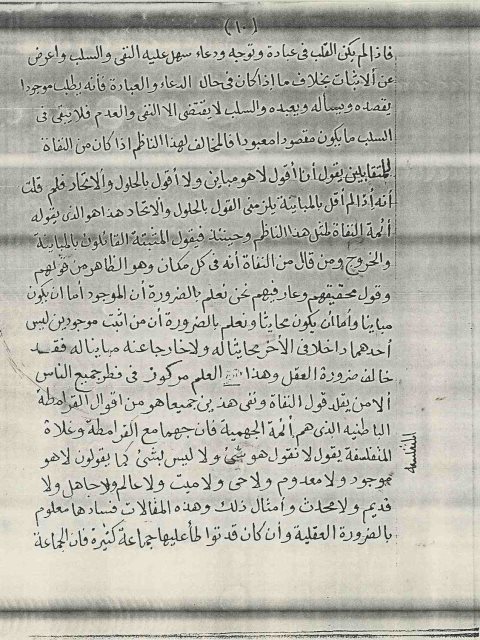 (١٠)
فاذا لم يكن القلب فى عبادة وتوجه ودعاء سهل عليه النفى والسلب واعرض
عن الاثبات بخلاف ما اذا كان فى حال الدعاء والعبادة فأنه يطلب موجودا
يقصده ويسأله ويعبده والسلب لا يقتضى الا النفى والعدم فلا ينفى فى
السلب ما يكون مقصودا معبودا فالمخالف لهذا الناظم اذا كان من النفاة
المتقابلين يقول أن أقول لا هو مباين ولا أقول بالحلول والاتحاد فلم قلت
أنه أذا لم أقل بالمباينة يلزمنى القول بالحلول والاتحاد هذا هو الذى يقوله
أئمة النفاة لمثل هذا الناظم وحينئذ فيقول المثبتة القائلون بالمباينة
والخروج ومن قال من النفاة أنه فى كل مكان وهو الظاهر من قولهم
وقول محققيهم وعارفيهم نحن نعلم بالضرورة أن الموجود أما ان يكون
مباينا وأما أن يكون محايثا ونعلم بالضرورة أن من أثبت موجودين ليس
أحدهما داخلا فى الآخر محايثا له ولا خارجا عنه مباينا له فقد
خالف ضرورة العقل وهذا العلم مركوز فى فطر جميع الناس
ألا من يقلد قول النفاة ونفى هذين جميعا هو من اقوال القرامطة
الباطنيه الذى هم أئمة الجهمية فان جهما مع القرامطة وغلاة
المتفلسفة يقول لا نقول هو شئ ولا ليس بشئ كما يقولون لا هو
موجود ولا معدوم ولا حى ولا ميت ولا عالم ولا جاهل ولا
قديم ولا محدث وأمثال ذلك وهذه المقالات فسادها معلوم
بالضرورة العقلية وأن كان قد تواطأ عليها جماعة كثيرة فان الجماعة
المتفلسفه